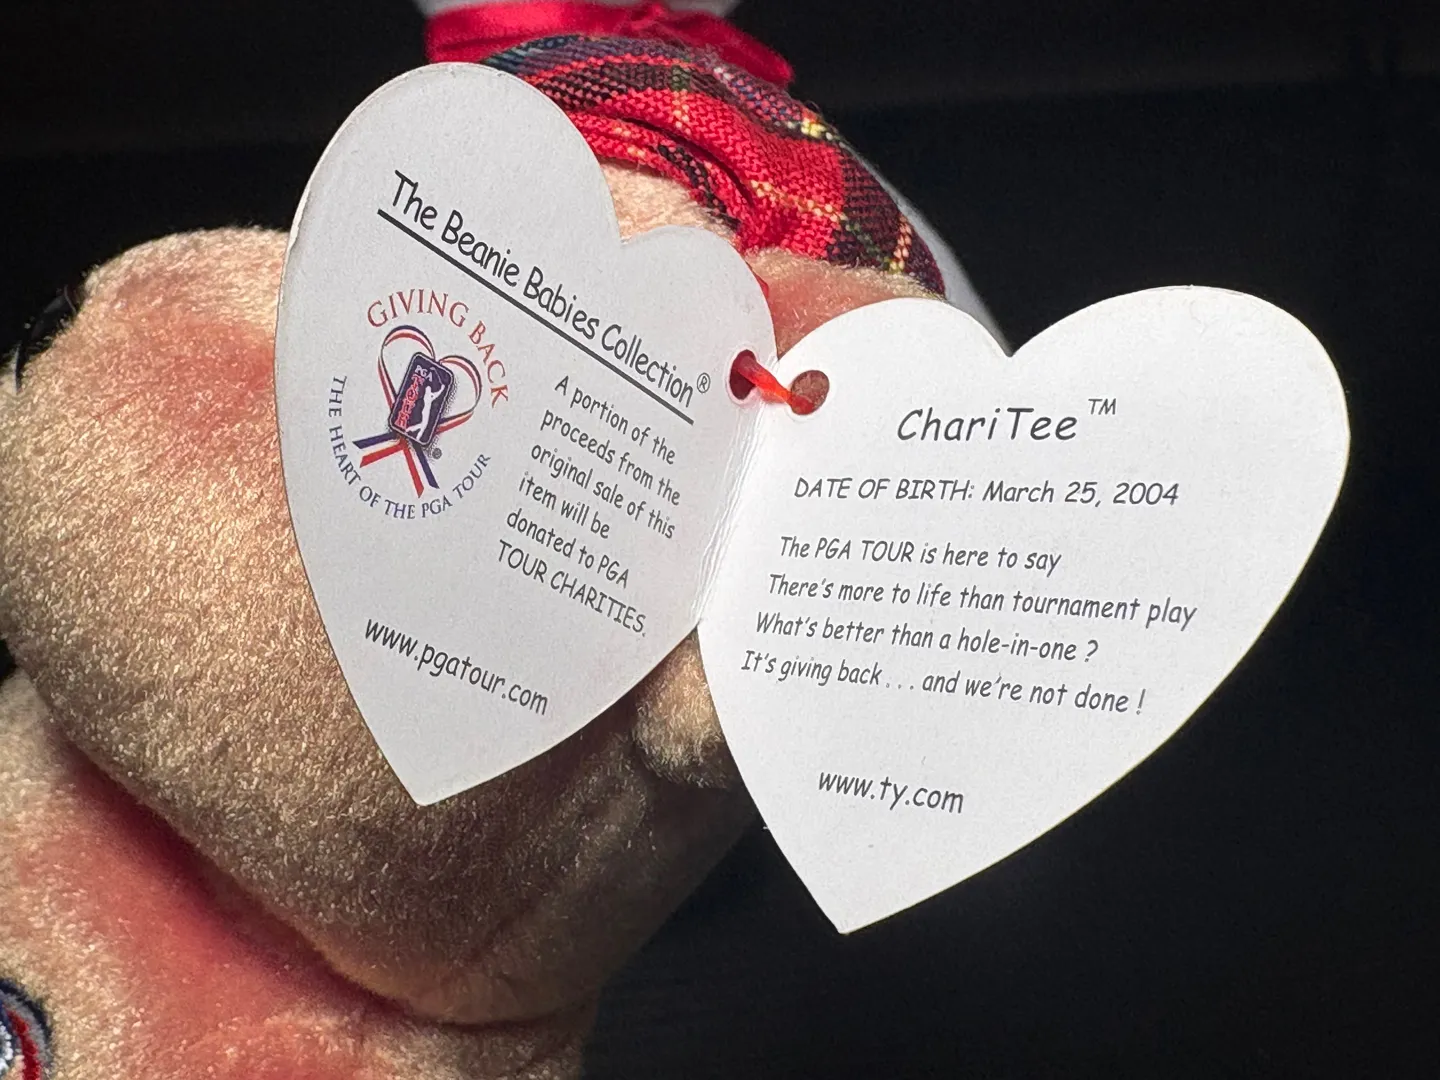 The Beanie Babies Collection®
GIVING BACK
PGA
TOUR
®
THE HEART OF THE PGA TOUR
A portion of the
proceeds from the
original sale of this
item will be
donated to PGA
TOUR CHARITIES.
www.pgatour.com
ChariTee™
DATE OF BIRTH: March 25, 2004
The PGA TOUR is here to say
There's more to life than tournament play
What's better than a hole-in-one ?
It's giving back . . . and we're not done !
www.ty.com